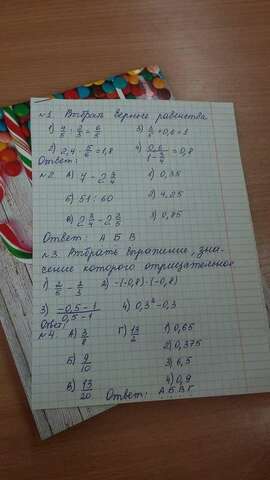 №1. Выбрать верные равенства
1) 4/5 : 2/3 = 6/5 3) 2/5 + 0,6 = 1
2) 2,4 · 5/6 = 1,8 4) 0,6/(1 - 3/4) = 0,8
Ответ:
№2. А) 7 - 2 3/4 1) 0,35
Б) 51 : 60 2) 4,25
В) 2 3/4 - 2 2/5 3) 0,85
Ответ: А Б В
№3. Выбрать выражение, зна-
чение которого отрицательное
1) 2/5 - 1/3 2) -(-0,8)·(-0,8)
3) (-0,5 - 1)/(0,5 - 1) 4) 0,3² - 0,3
Ответ:
№4. А) 3/8 Г) 13/2 1) 0,65
Б) 9/10 2) 0,375
В) 13/20 3) 6,5
4) 0,9
Ответ: А Б В Г